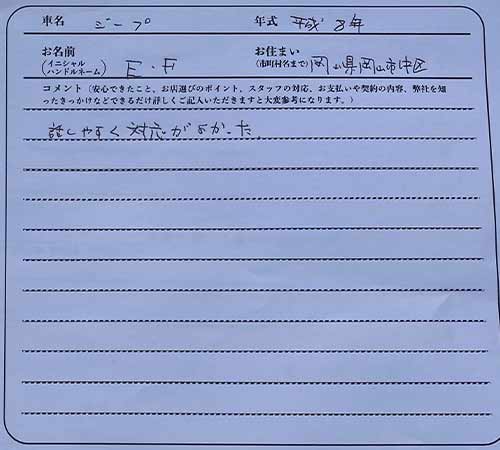 車名 ジープ 年式 平成 8年
お名前 お住まい
(イニシャル ハンドルネーム) E.F (市町村名まで) 岡山県岡山市中区
コメント(安心できたこと、お店選びのポイント、スタッフの対応、お支払いや契約の内容、弊社を知
ったきっかけなどできるだけ詳しくご記入いただきますと大変参考になります。)
話しやすく対応がよかった